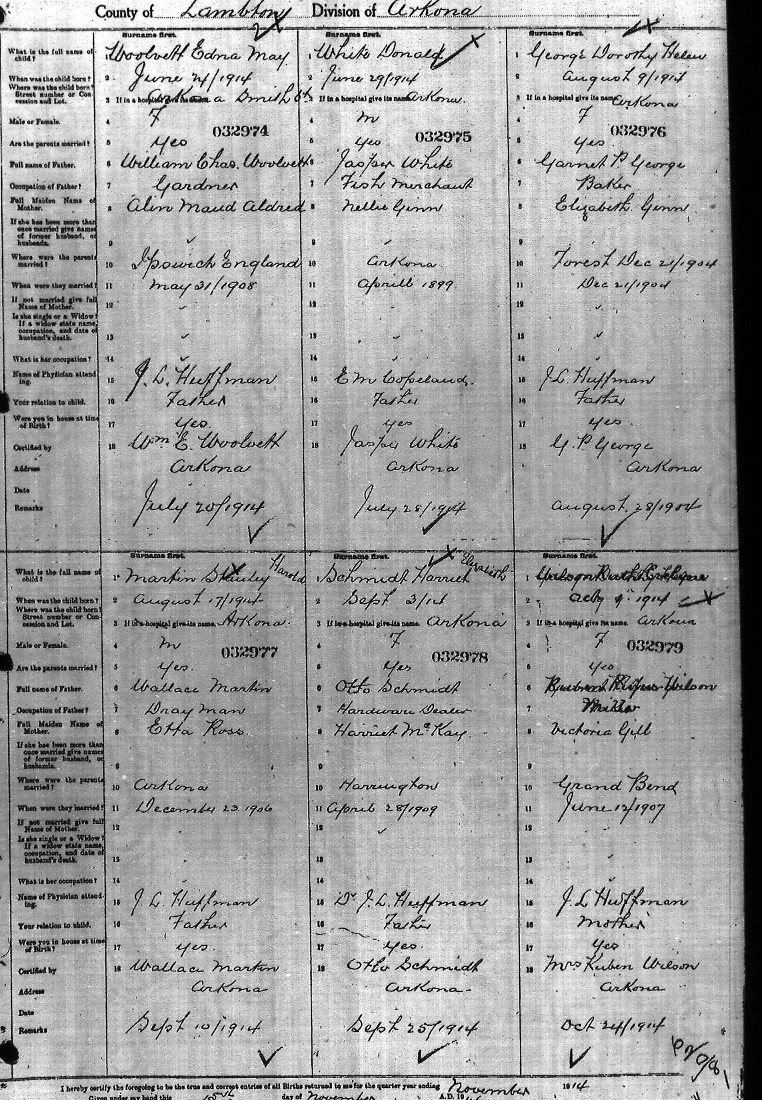 County of Lambton Division of Arkona
Surname first. Surname first. Surname first.
What is the full name of child? 1 Woolvett Edna May 1 White Donald 1 George Dorothy Helen
When was the child born? 2 June 24/1914 2 June 29/1914 2 August 9/1914
Where was the child born? Street number or Concession and Lot. 3 If in a hospital give its name. Arkona Smith St 3 If in a hospital give its name Arkona. 3 If in a hospital give its name Arkona
Male or Female. 4 F 4 m 4 F
032974 032975 032976
Are the parents married? 5 Yes 5 yes 5 yes.
Full name of Father. 6 William Chas. Woolvett 6 Jasper White 6 Garnet P George
Occupation of Father? 7 Gardner 7 Fish Merchant 7 Baker
Full Maiden Name of Mother. 8 Alin Maud Aldred 8 Nellie Ginn 8 Elizabeth Genn
If she has been more than once married give names of former husband, or husbands. 9 9 9
Where were the parents married? 10 Ipswich England 10 Arkona 10 Forest Dec 21/1904
When were they married? 11 May 31/1908 11 Aprill 1899 11 Dec 21/1904
If not married give full Name of Mother. 12 12 12
Is she single or a Widow? If a widow state name, occupation, and date of husband's death. 13 13 13
What is her occupation? 14 14 14
Name of Physician attending. 15 J. L. Huffman 15 E M Copeland. 15 J L. Huffman
Your relation to child. 16 Father 16 Father 16 Father
Were you in house at time of Birth? 17 yes. 17 yes 17 yes.
Certified by 18 Wm E. Woolvett 18 Jasper White 18 G. P. George
Address Arkona Arkona Arkona
Date
Remarks July 20/1914 July 28/1904 August 28/1904
Surname first. Surname first. Surname first.
What is the full name of child? 1 Martin Stanley Harold 1 Schmidt Harriet Elizabeth 1 Wilson Ruth
When was the child born? 2 August 17/1914 2 Sept 3/14 2 1914
Where was the child born? Street number or Concession and Lot. 3 If in a hospital give its name. Arkona. 3 If in a hospital give its name. Arkona 3 If in a hospital give its name. Arkona
Male or Female. 4 m 4 F 4 F
032977 032978 032979
Are the parents married? 5 Yes. 5 Yes 5 yes
Full name of Father. 6 Wallace Martin 6 Otto Schmidt 6 Wilson
Occupation of Father? 7 Dray man 7 Hardware Dealer 7 Miller
Full Maiden Name of Mother. 8 Etta Ross 8 Harriet McKay 8 Victoria Gill
If she has been more than once married give names of former husband, or husbands. 9 9 9
Where were the parents married? 10 Arkona 10 Harrington 10 Grand Bend
When were they married? 11 December 23 1906 11 April 28/1909 11 June 12/1907
If not married give full Name of Mother. 12 12 12
Is she single or a Widow? If a widow state name, occupation, and date of husband's death. 13 13 13
What is her occupation? 14 14 14
Name of Physician attending. 15 J. L. Huffman 15 Dr J. L. Huffman 15 J. L Huffman
Your relation to child. 16 Father 16 Father 16 Mother
Were you in house at time of Birth? 17 yes. 17 yes. 17 Yes
Certified by 18 Wallace Martin 18 Otto Schmidt 18 Mrs Ruben Wilson
Address Arkona Arkona Arkona
Date
Remarks Sept 10/1914 Sept 25/1914 Oct 24/1914
I hereby certify the foregoing to be the true and correct entries of all Births returned to me for the quarter year ending November 1914
Given under my hand this 15th day of November A.D. 19